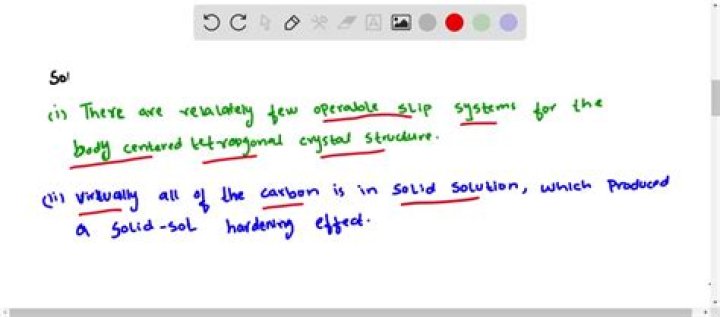 Sol
(i) There are relalately few operable slip systems for the
body centered tetragonal crystal structure.
(ii) Virtually all of the carbon is in solid solution, which produced
a solid-sol hardening effect.